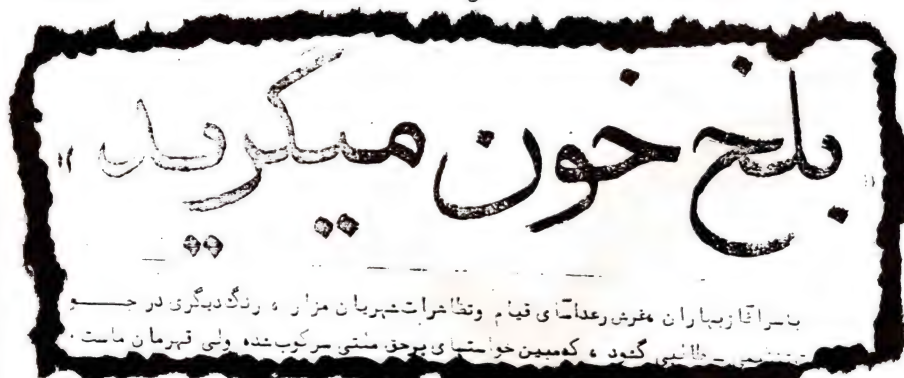 « بلخ خون میگرید »
باسرآغاز بهاران ،غرش رعدآسای قیام وتظاهرات شهریان مزار ، رنگ دیگری در جـــو
طلبی گشود ، که مبین خواستهای برحق ملتی سرکوب شده ولی قهرمان ماست .